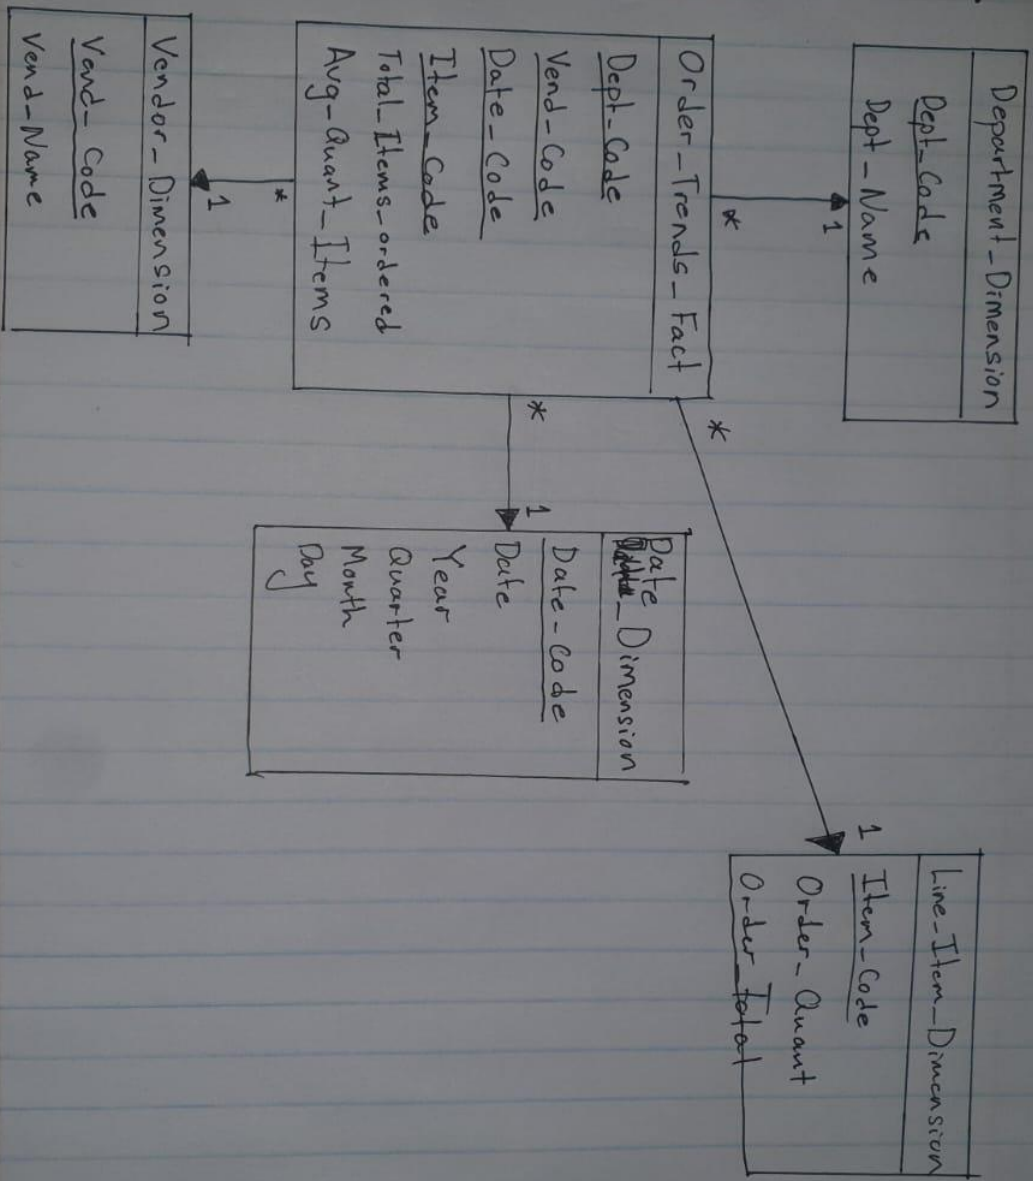 Department_Dimension
Dept_Code
Dept_Name
1
*
Order_Trends_Fact
Dept_Code
Vend_Code
Date_Code
Item_Code
Total_Items_ordered
Avg_Quant_Items
*
1
Vendor_Dimension
Vend_Code
Vend_Name
*
1
Date
_Dimension
Date_Code
Date
Year
Quarter
Month
Day
*
1
Line_Item_Dimension
Item_Code
Order_Quant
Order_Total